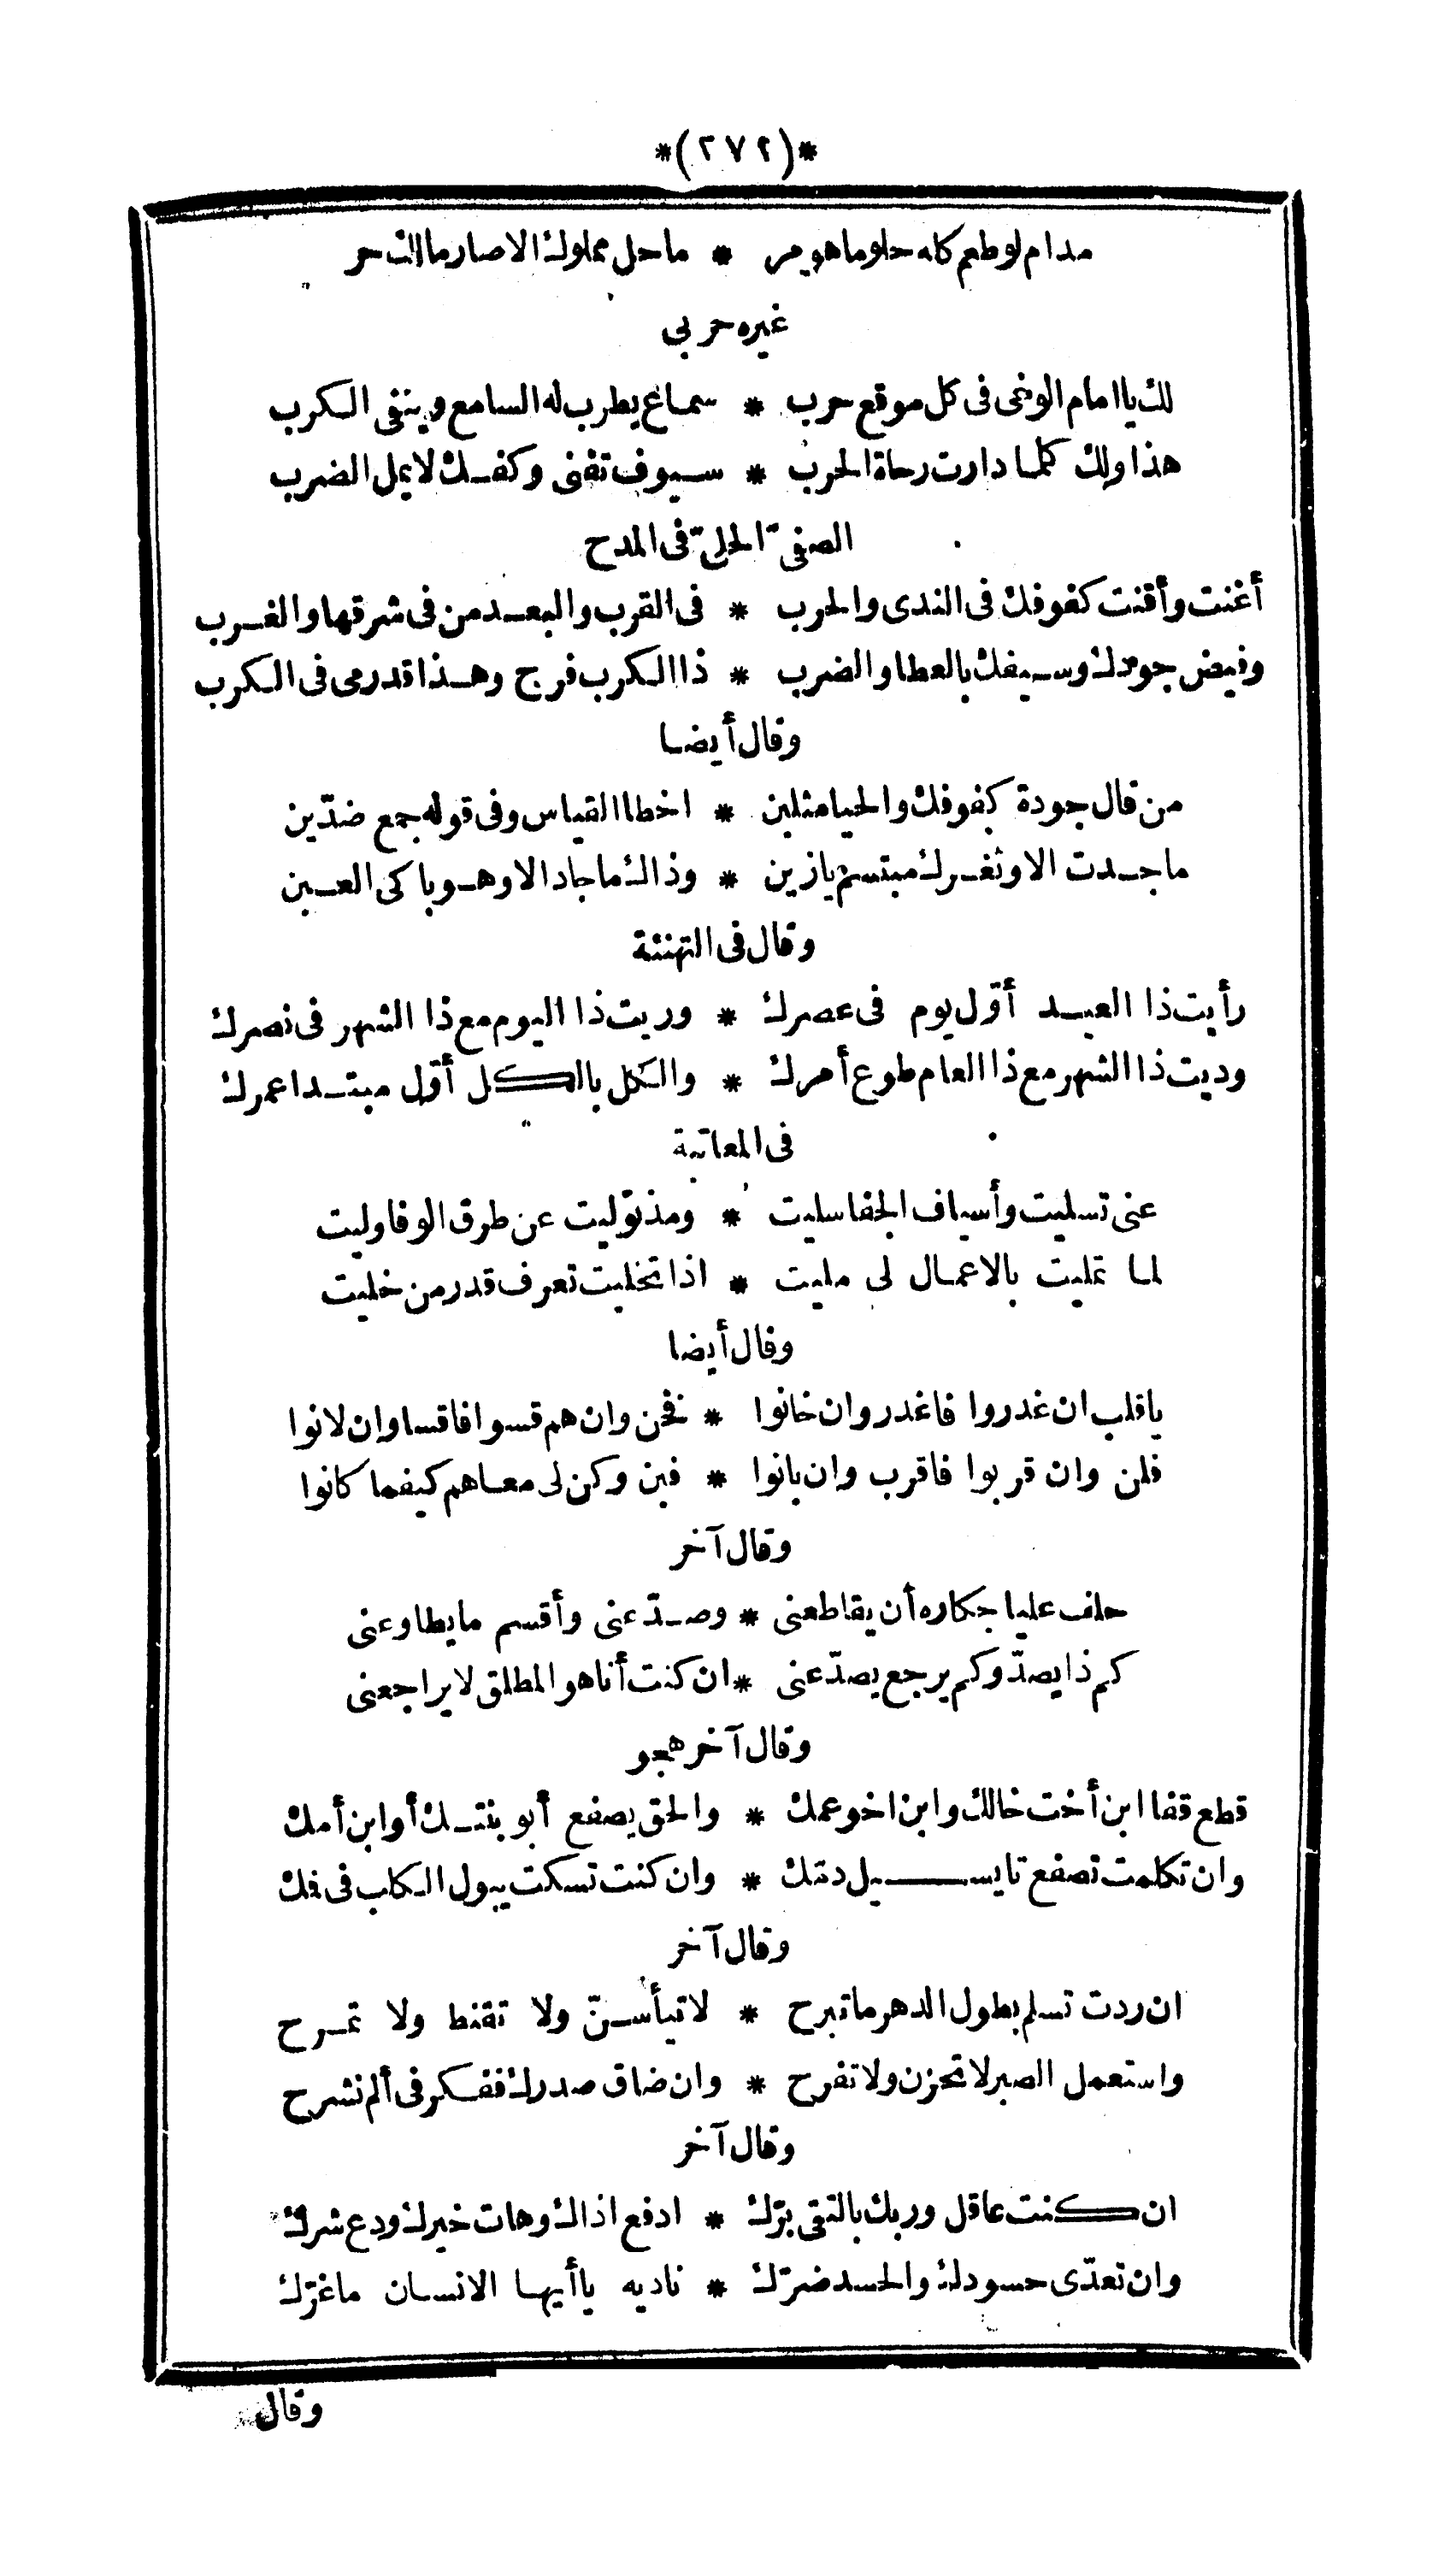 *(٢٧٢)*
مدام لو طعم كله حلو ما هو مر * ما حل مملوك الا صار مالك حر
غيره حربى
لك يا امام الوغى فى كل موقع حرب * سماع يطرب له السامع وينفى الكرب
هذا ولك كلما دارت رحاة الحرب * سيوف تفنى وكفك لا يمل الضرب
الصفىّ الحلىّ فى المدح
أغنت وأقنت كفوفك فى الندى والحرب * فى القرب والبعد من فى شرقها والغرب
وفيض جودك وسيفك بالعطا والضرب * ذا الكرب فرج وهذا قد رمى فى الكرب
وقال أيضا
من قال جودة كفوفك والحيا مثلين * اخطا القياس وفى قوله جمع ضدّين
ما جدت الا وثغرك مبتسم يا زين * وذاك ما جاد الا وهو باكى العين
وقال فى التهنئة
رأيت ذا العيد أوّل يوم فى عصرك * وريت ذا اليوم مع ذا الشهر فى نصرك
وديت ذا الشهر مع ذا العام طوع أمرك * والكل بالكل أوّل مبتدا عمرك
فى المعاتبة
عنى تسليت وأسياف الجفا سليت * ومذ توّليت عن طرق الوفا وليت
لما تمليت بالاعمال لى مليت * اذا تخليت تعرف قدر من خليت
وقال أيضا
يا قلب ان غدروا فاغدر وان خانوا * فخن وان هم قسوا فاقسا وان لانوا
فلن وان قربوا فاقرب وان بانوا * فبن وكن لى معاهم كيفما كانوا
وقال آخر
حلف عليا جكاره أن يقاطعنى * وصدّ عنى وأقسم ما يطاوعنى
كم ذا يصدّ وكم يرجع يصدّ عنى * ان كنت أنا هو المطلق لا يراجعنى
وقال آخر هجو
قطع قفا ابن أخت خالك وابن اخو عمك * والحق يصفع أبو بنتك أو ابن أمك
وان تكلمت تصفع تا يسيل دمّك * وان كنت تسكت يبول الكلب فى فك
وقال آخر
ان ردت تسلم بطول الدهر ما تبرح * لا تيأسنّ ولا تقنط ولا تمرح
واستعمل الصبر لا تحزن ولا تفرح * وان ضاق صدرك ففكر فى ألم نشرح
وقال آخر
ان كنت عاقل وربك بالتقى برّك * ادفع اذاك وهات خيرك ودع شرك
وان تعدّى حسودك والحسد ضرّك * ناديه يا أيها الانسان ما غرّك
وقال